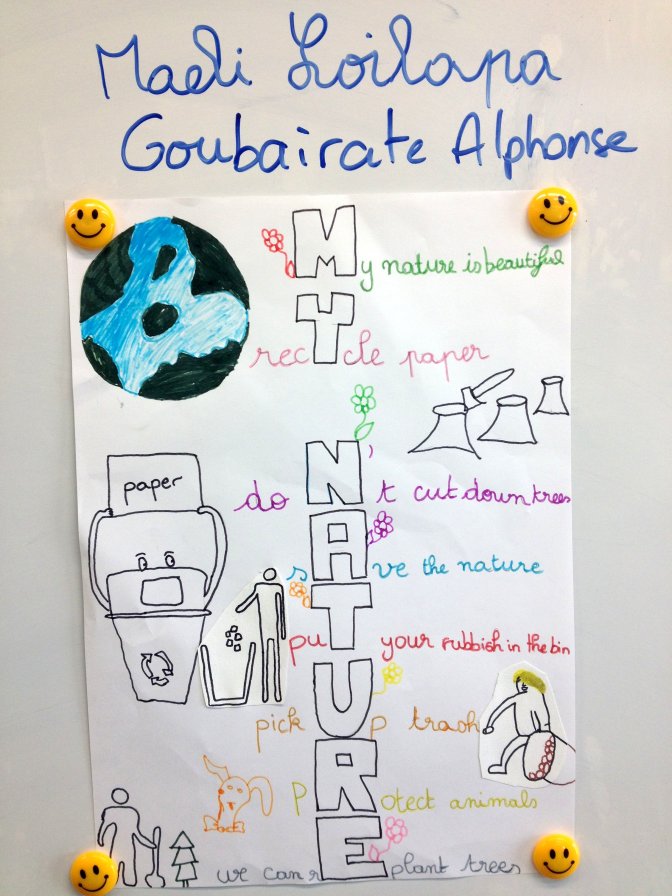 Maeli Loilapa
Goubairate Alphonse
My nature is beautiful
recYcle paper
paper
do N't cut down trees
sAve the nature
puT your rubbish in the bin
pick Up trash
pRotect animals
we can rEplant trees